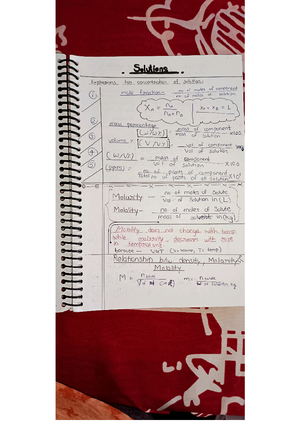 Solutions
Expressions for concentration of solution.
① mole fraction = no of moles of component / no of moles of solution
Xₐ = nₐ / nₐ + nᵦ
Xₐ + Xᵦ = 1
② mass percentage [(W/W)] = mass of component / mass of solution × 100
③ volume % [(V/V)] = vol of component / Vol of Solution × 100
④ (W/V) = mass of component / Vol of Solution × 100
⑤ (ppm) = no of parts of component / total no of parts of all × 10⁶
Molarity - no of moles of Solute / Vol of Solution in (L)
Molality - no of moles of Solute / mass of solvent in (Kg)
Molality does not change with temp
while molarity decreases with
in
because
Relationship b/w density, Molarity &
Molality
M =
m =